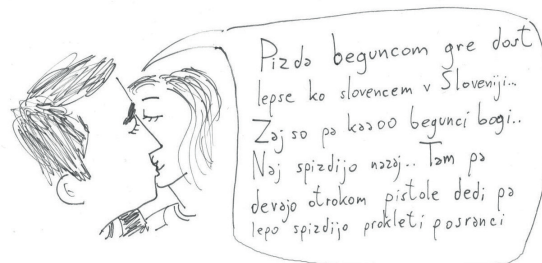 Pizda beguncom gre dost
lepse ko slovencem v Sloveniji...
Zaj so pa kaaoo begunci bogi..
Naj spizdijo nazaj.. Tam pa
devajo otrokom pistole dedi pa
lepo spizdijo prokleti posranci